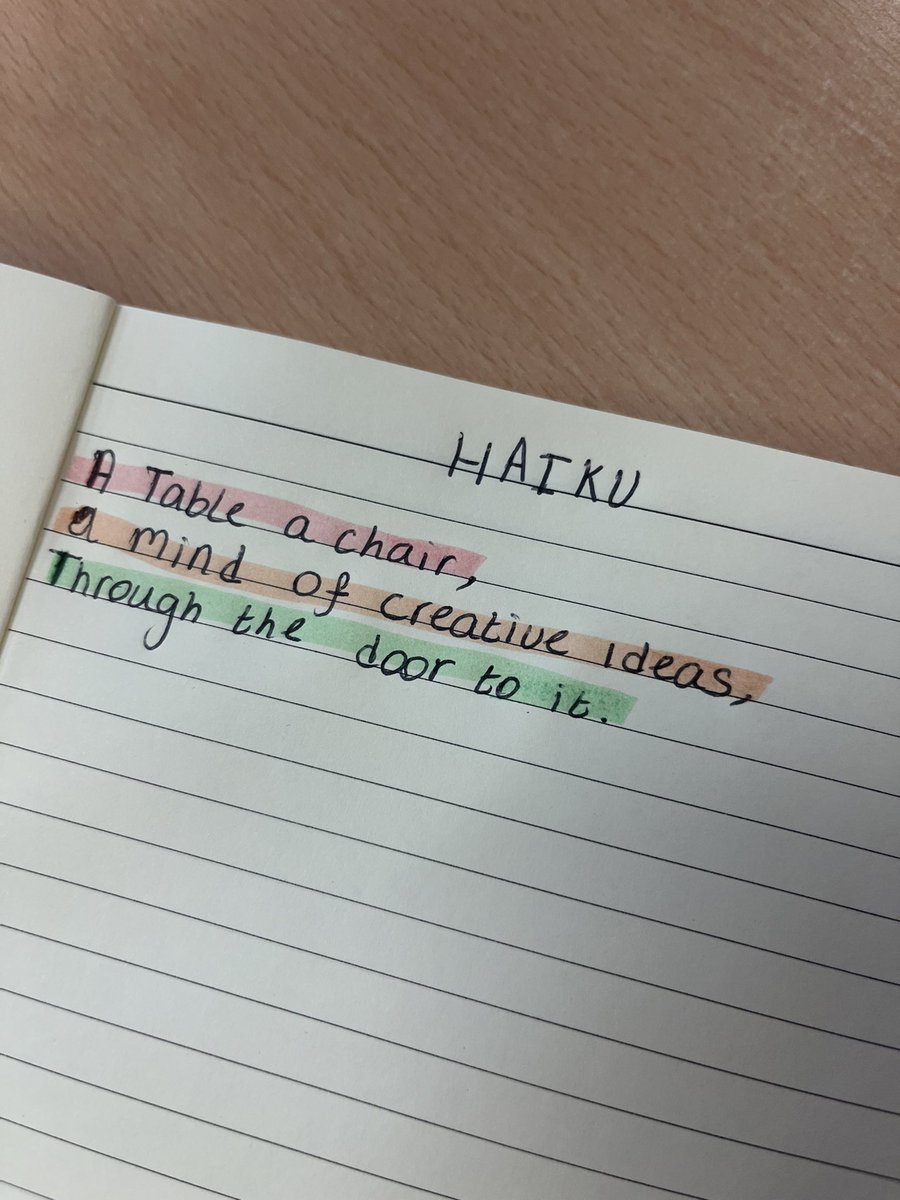 HAIKU
A Table a chair,
a mind of creative ideas,
Through the door to it.